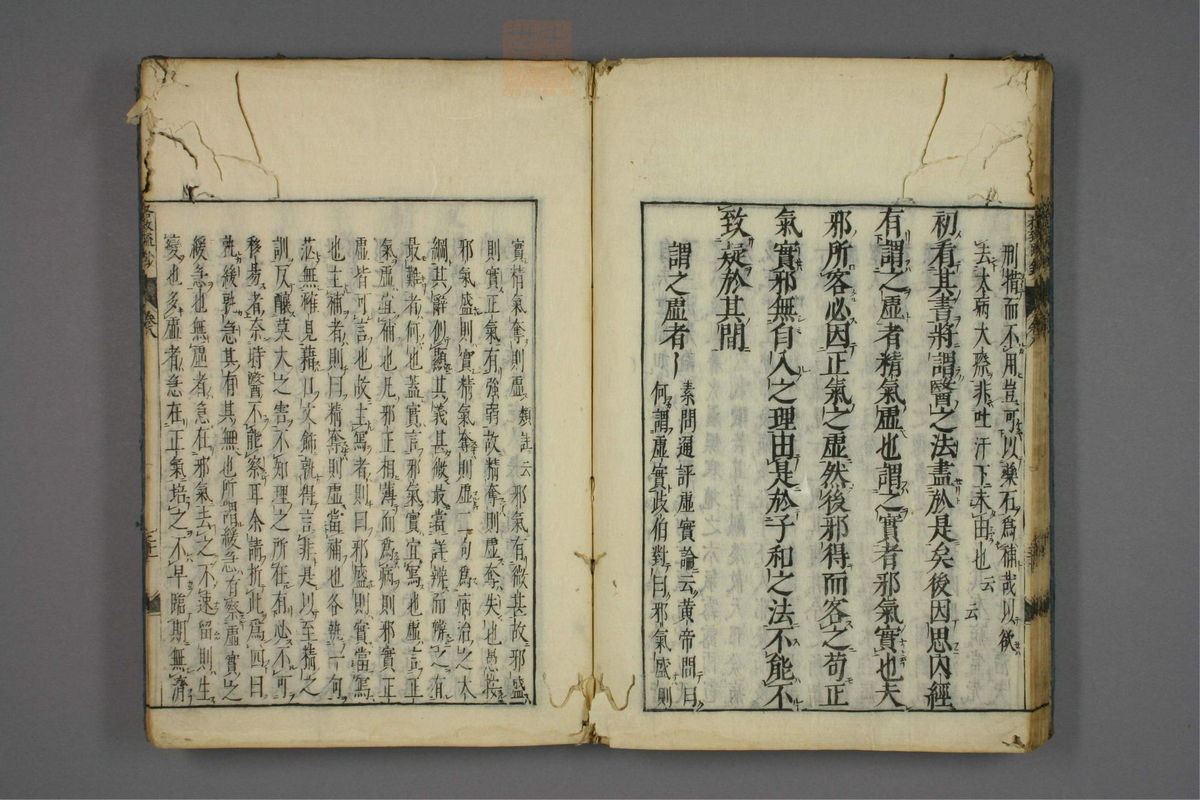 刑措而不用豈可以藥石爲補哉以欲
去大病大瘵非吐汗下末由也云云
初看其書將謂醫之法盡於是矣後因思內經
有謂之虛者精氣虛也謂之實者邪氣實也夫
邪所客必因正氣之虛然後邪得而客之苟正
氣實邪無自入之理由是於子和之法不能不
致疑於其間
謂之虛者
素問通評虛實論云黃帝問曰
何謂虛實岐伯對曰邪氣盛則
實精氣奪則虛 類註云邪氣有微甚故邪盛
則實正氣有強弱故精奪則虛奪失也愚按
邪氣盛則實精氣奪則虛二句爲病治之大
綱其辭似顯其義甚微最當詳辨而辨之有
最難者何也蓋實言邪氣實宜寫也虛言正
氣虛當補也凡邪正相薄而爲病則邪實正
虛皆可言也故主寫者則曰邪盛則實當寫
也主補者則曰精奪則虛當補也各執一句
茫無確見藉口文飾孰得言非是以至精之
訓反釀莫大之害不知理之所在有必不可
移易者奈時醫不能察耳余請折此爲四曰
孰緩孰急其有其無也所謂緩急有察虛實之
緩急也無虛者急在邪氣去之不速留則生
變也多虛者急在正氣培之不早臨期無濟